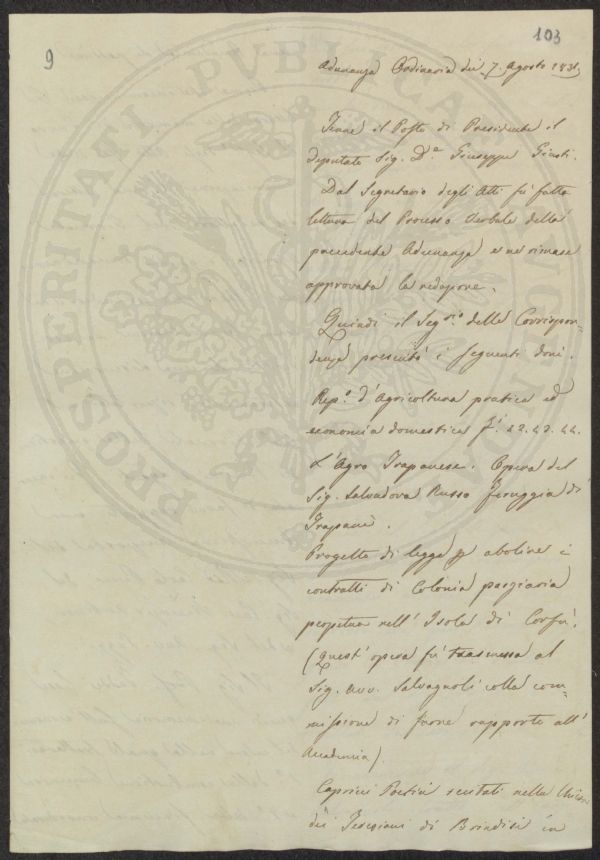 9
103
Adunanza Ordinaria dei 7. Agosto 1831
Tenne il Posto di Presidente il
deputato Sig. D.e Giuseppe Giusti.
Dal Segretario degli Atti fù fatta
lettura del Processo Verbale della
precedente Adunanza e ne rimase
approvata la redazione.
Quindi il Seg.rio delle Corrispon-
denze presentò i seguenti doni.
Rep.o d'Agricoltura pratica ed
economia domestica f.i 42.43.44.
L'Agro Trapanese. Opera del
Sig. Salvadova Russo Feruggia di
Trapani.
Progetto di legge p abolire i
contratti di Colonia parziaria
perpetua nell'Isola di Corfù.
(Quest'opera fù trasmessa al
Sig. Avv. Salvagnoli colla com-
missione di farne rapporto all'
Accademia).
Caprici Poetici nella
dei di Brindisi in
PROSPERITATI PVBLICAE AVGENDAE